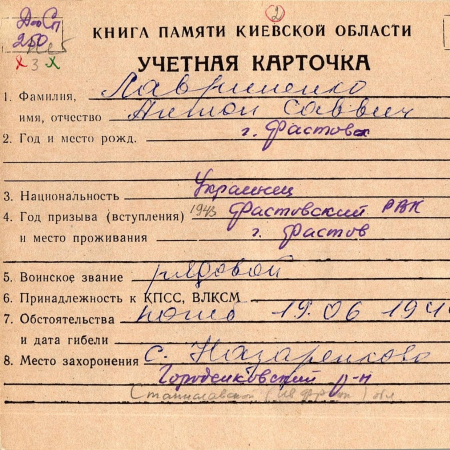 2
Д-Сп
250
х 3 х
КНИГА ПАМЯТИ КИЕВСКОЙ ОБЛАСТИ
УЧЕТНАЯ КАРТОЧКА
1. Фамилия, Лавриненко
имя, отчество Антон Саввич
2. Год и место рожд. г. Фастов
3. Национальность Украинец
4. Год призыва (вступления) 1943 Фастовский РВК
и место проживания г. Фастов
5. Воинское звание рядовой
6. Принадлежность к КПСС, ВЛКСМ
7. Обстоятельства погиб 19.06 194
и дата гибели
8. Место захоронения с. Назаренково
Городенковский р-н
Станиславской обл